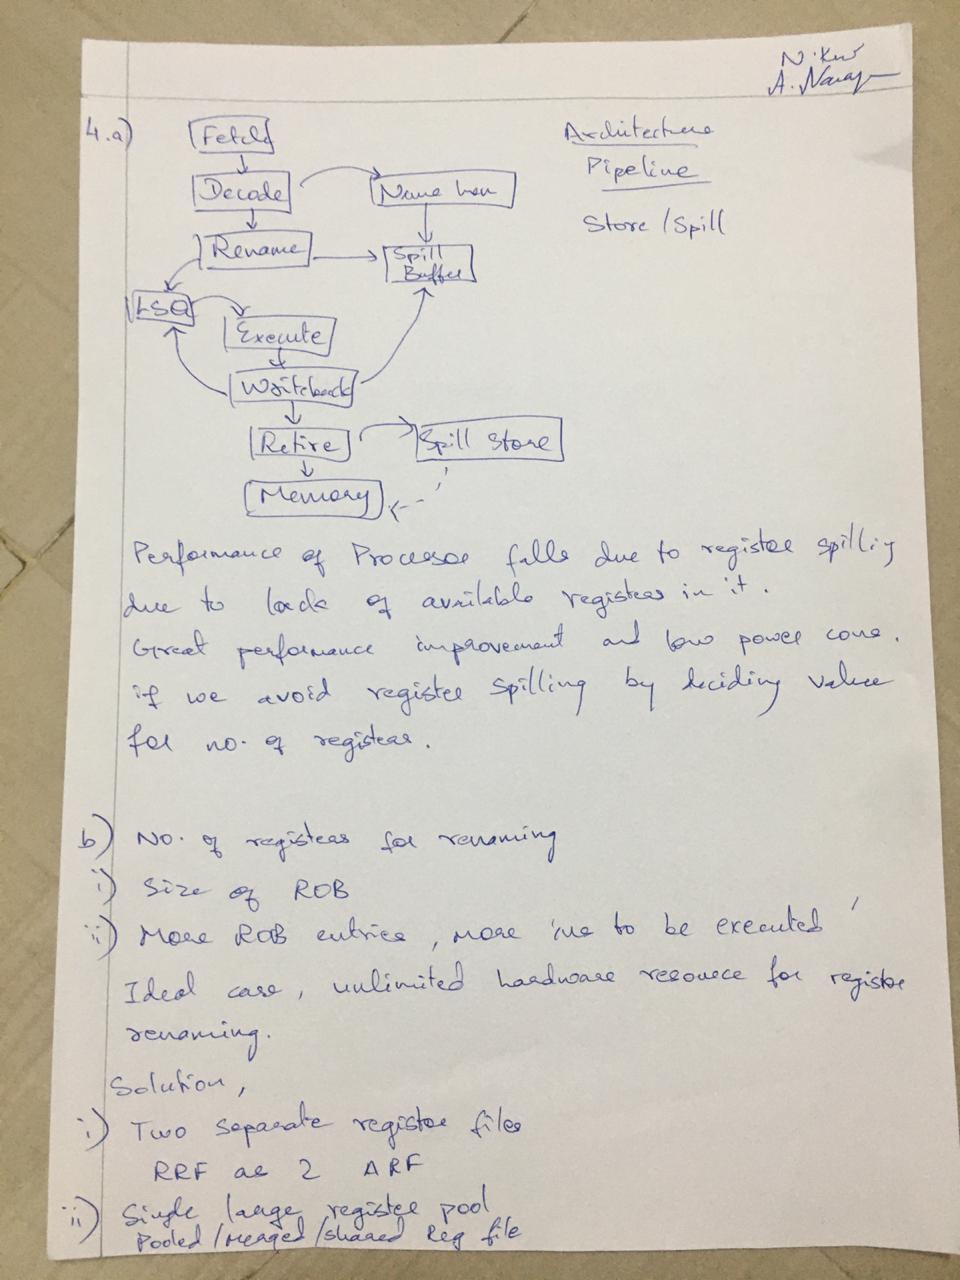 N.
A.
4.a)
Architecture
Pipeline
Store / Spill
Fetch
Decode
Rename
Spill
Buffer
LSQ
Execute
Writeback
Retire
Spill Store
Memory
Performance of Processor falls due to register spilling
due to lack of available registers in it.
Great performance improvement and low power cons.
if we avoid register spilling by deciding value
for no. of registers.
b) No. of registers for renaming
i) Size of ROB
ii) More ROB entries, more ins to be executed
Ideal case, unlimited hardware resource for register
renaming.
Solution,
i) Two separate register files
RRF as 2 ARF
ii) Single large register pool
Pooled / merged / shared Reg file